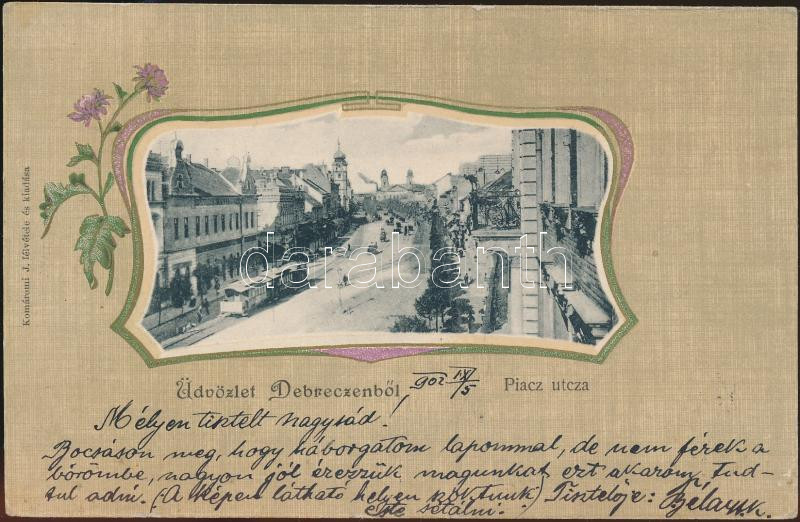 Komáromi J. felvétele és kiadása
darabanth
Üdvözlet Debreczenből
902 IX/5
Piacz utcza
Mélyen tisztelt nagysád!
Bocsáson meg, hogy háborgatom lapommal, de nem férek a
bőrömbe, nagyon jól érezzük magunkat ezt akarom tud-
tul adni. (A képen látható helyen szoktunk) Tisztelője:
este sétálni.